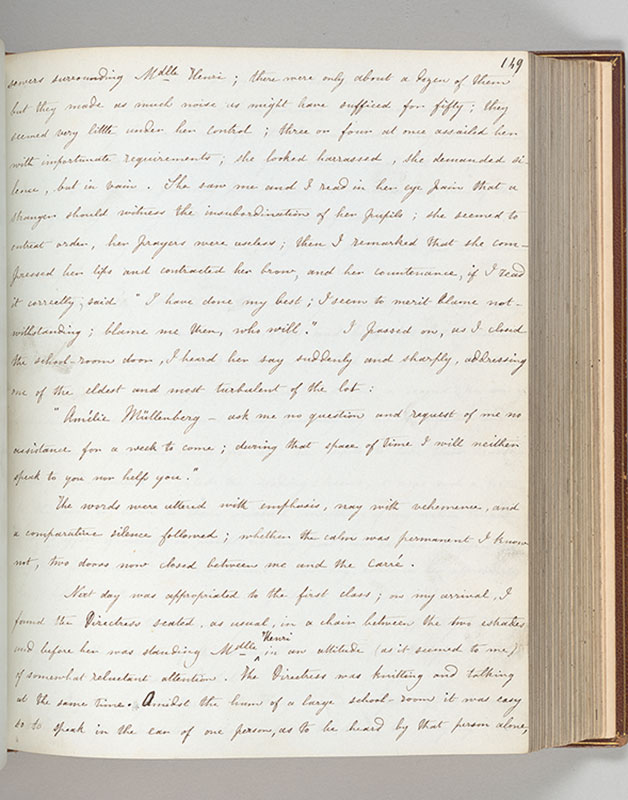 149
sewers surrounding Mdlle Henri ; there were only about a dozen of them
but they made as much noise as might have sufficed for fifty ; they
seemed very little under her control ; three or four at once assailed her
with importunate requirements ; she looked harrassed , she demanded si-
lence , but in vain . She saw me and I read in her eye pain that a
stranger should witness the insubordination of her pupils ; she seemed to
entreat order , her prayers were useless ; then I remarked that she com-
pressed her lips and contracted her brow, and her countenance, if I read
it correctly, said "I have done my best ; I seem to merit blame not-
withstanding ; blame me then, who will." I passed on, as I closed
the school-room door, I heard her say suddenly and sharply, addressing
one of the eldest and most turbulent of the lot :
"Amélie Müllenberg – ask me no question and request of me no
assistance for a week to come ; during that space of time I will neither
speak to you nor help you."
The words were uttered with emphasis, nay with vehemence, and
a comparative silence followed ; whether the calm was permanent I know
not , two doors now closed between me and the Carré .
Next day was appropriated to the first class ; on my arrival, I
found the Directress seated, as usual, in a chair between the two estrades
and before her was standing Mdlle Henri in an attitude (as it seemed to me)
of somewhat reluctant attention . The Directress was knitting and talking
at the same time. Amidst the hum of a large school-room it was easy
so to speak in the ear of one person, as to be heard by that person alone,